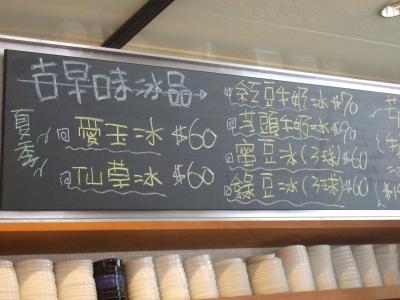 古早味冰品
夏季
回愛玉=冰 $60
回仙草=冰 $60
回紅豆牛奶=冰 $70
回芋頭牛奶=冰 $90
回蜜豆=冰(3球) $60
回綠豆=冰(3球) $60